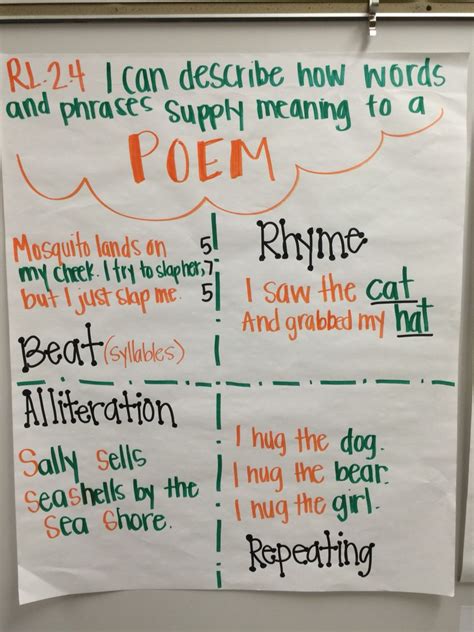 RL.2.4 I can describe how words
and phrases supply meaning to a
POEM
Mosquito lands on 5
my cheek. I try to slap her, 7
but I just slap me. 5
Beat (syllables)
Rhyme
I saw the cat
And grabbed my hat
Alliteration
Sally Sells
SeaShells by the
Sea Shore.
I hug the dog.
I hug the bear.
I hug the girl.
Repeating